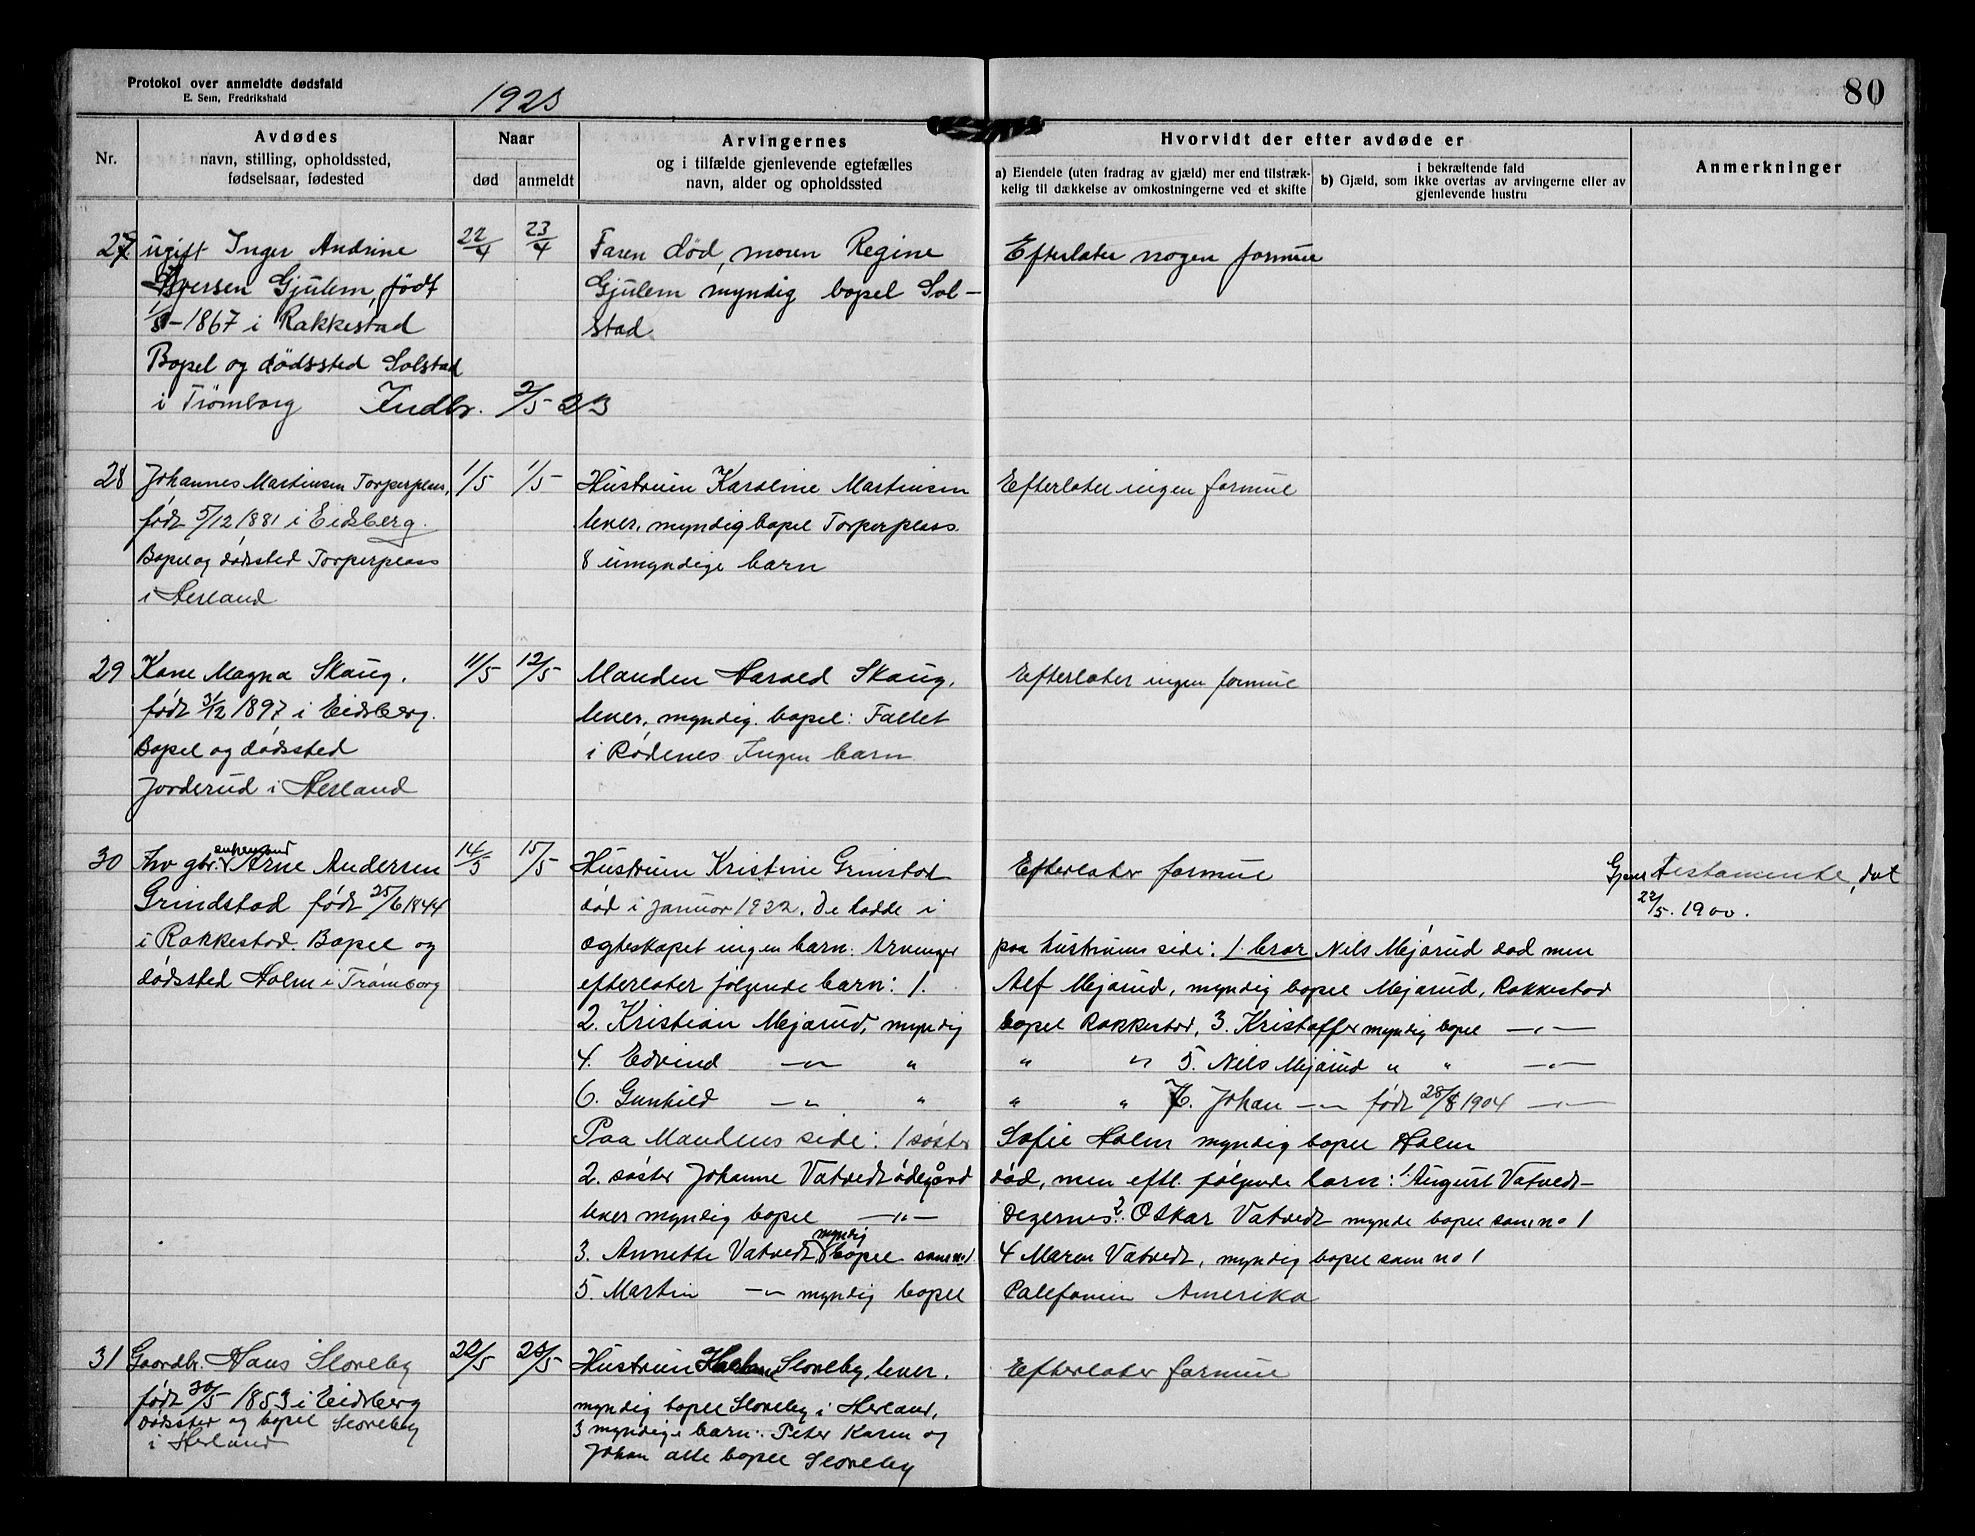 Protokol over anmeldte dødsfald
E. Sem, Fredrikshald
1923
80
Nr.
Avdødes
navn, stilling, opholdssted,
fødselsaar, fødested
Naar
død
anmeldt
Arvingernes
og i tilfælde gjenlevende egtefælles
navn, alder og opholdssted
Hvorvidt der efter avdøde er
a) Eiendele (uten fradrag av gjæld) mer end tilstræk-
kelig til dækkelse av omkostningerne ved et skifte
i bekræftende fald
b) Gjæld, som ikke overtas av arvingerne eller av
gjenlevende hustru
Anmerkninger
27. ugift Inger Andrine
Iversen Gjulem, født
1/8-1867 i Rakkestad
Bopel og dødssted Solstad
i Trømborg Indbr. 2/5-23
22/4
23/4
Faren død, moren Regine
Gjulem myndig bopel Sol-
stad
Efterlater nogen formue
28 Johannes Martinsen Torperplass,
født 5/12 1881 i Eidsberg.
Bopel og dødssted Torperplass
i Herland
1/5
1/5
Hustruen Karoline Martinsen
lever, myndig bopel Torperplass.
8 umyndige barn
Efterlater ingen formue
29 Kone Magna Skaug.
født 3/12 1897 i Eidsberg.
Bopel og dødssted
Jorderud i Herland
11/5
12/5
Manden Harald Skaug,
lever, myndig. bopel: Fallet
i Rødenes Ingen barn
Efterlater ingen formue
30 Fhv gbr. enkemand Arne Andersen
Grindstad født 25/6 1844
i Rakkestad. Bopel og
dødssted Holm i Trømborg
14/5
15/5
Hustruen Kristine Grinstad
død i januar 1922. De hadde i
ægteskapet ingen barn. Arvinger
paa hustruens side: 1 bror Nils Mejørud død men
efterlater følgende barn: 1.
Alf Mejørud, myndig bopel Mejørud, Rakkestad
2. Kristian Mejørud, myndig
bopel Rakkestad, 3. Kristoffer myndig bopel —"—
4. Edvind —"— "
" " 5. Nils Mejørud " " —"—
6. Gunhild —"— "
" " 7. Johan —"— født 28/8 1904 —"—
Paa Mandens side: 1 søster
Sofie Holm myndig bopel Holm
2. søster Johanne Vatvedt ødegård
død, men eftl. følgende barn: 1. August Vatvedt-
lever myndig bopel —"—
Degernes 2. Oskar Vatvedt mynde bopel som no 1
3. Annette Vatvedt myndig bopel som no 1
4 Maren Vatvedt, myndig bopel som no 1
5. Martin —"— myndig bopel
Calefonien Amerika
Efterlater formue
Gjens. testamente, dat
22/5. 1900.
31 Gaardbr. Hans Sloreby
født 30/5 1853 i Eidsberg
dødssted og bopel Sloreby
i Herland
22/5
23/5
Hustruen Sloreby, lever.
myndig bopel Sloreby i Herland,
3 myndige barn: Peter Karen og
Johan alle bopel Sloreby
Efterlater formue